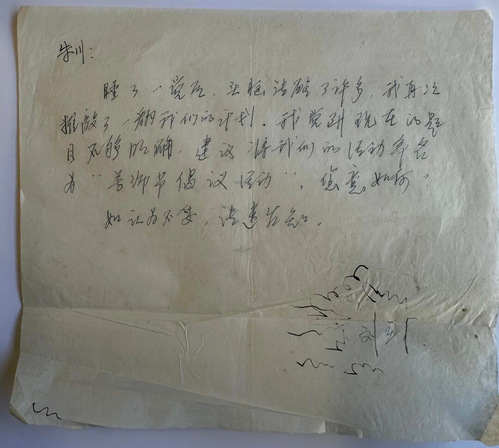 朱川：
睡了一觉后，头脑清醒了许多，我再次
推敲了一翻我们的计划。我觉得现在的题
目不够明确，建议将我们的活动命名
为“首御节倡议活动”，您意如何？
如认为不妥，请速告知。